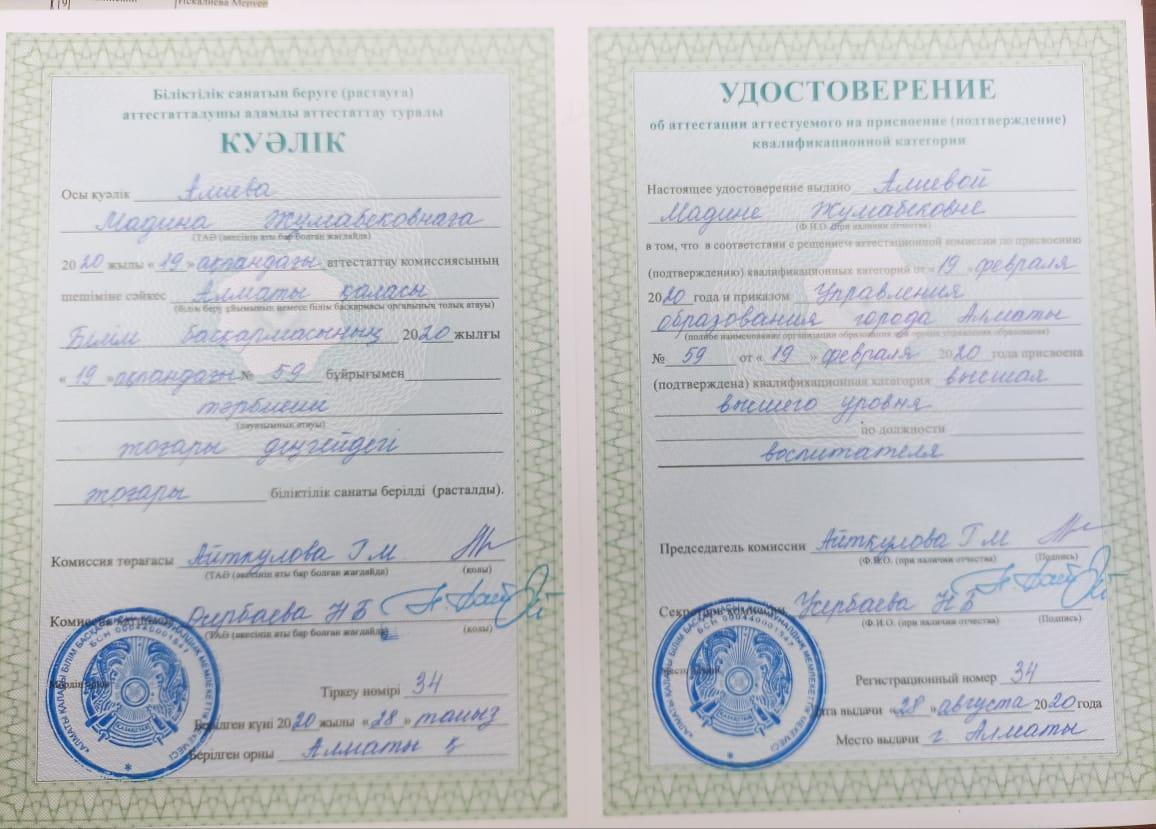 Искалиева Меруер
Біліктілік санатын беруге (растауға)
аттестатталушы адамды аттестаттау туралы
КУӘЛІК
Осы куәлік Алиева
Мадина Жұмабековнаға
(ТАӘ (әкесінің аты бар болған жағдайда)
2020 жылы «19» ақпандағы аттестаттау комиссиясының
шешіміне сәйкес Алматы қаласы
(білім беру ұйымының немесе білім басқармасы органының толық атауы)
Білім басқармасының 2020 жылғы
«19» ақпандағы № 59 бұйрығымен
тәрбиеші
(лауазымның атауы)
жоғары деңгейдегі
жоғары біліктілік санаты берілді (расталды).
Комиссия төрағасы Айткулова Г М
(ТАӘ (әкесінің аты бар болған жағдайда) (қолы)
Н Б
(ТАӘ (әкесінің аты бар болған жағдайда) (қолы)
Тіркеу нөмірі 34
Берілген күні 2020 жылы «28» тамыз
Берілген орны Алматы қ
БСН 000440001547
ҚАЗАҚСТАН
УДОСТОВЕРЕНИЕ
об аттестации аттестуемого на присвоение (подтверждение)
квалификационной категории
Настоящее удостоверение выдано Алиевой
Мадине Жумабековне
(Ф.И.О. (при наличии отчества)
в том, что в соответствии с решением аттестационной комиссии по присвоению
(подтверждению) квалификационных категорий от «19» февраля
2020 года и приказом Управления
образования города Алматы
(полное наименование организации образования или органа управления образования)
№ 59 от «19» февраля 2020 года присвоена
(подтверждена) квалификационная категория высшая
высшего уровня
по должности
воспитателя
Председатель комиссии Айткулова Г М
(Ф.И.О. (при наличии отчества) (Подпись)
Секретарь комиссии Н Б
(Ф.И.О. (при наличии отчества) (Подпись)
Регистрационный номер 34
Дата выдачи «28» августа 2020 года
Место выдачи г. Алматы
БСН 000440001547
ҚАЗАҚСТАН